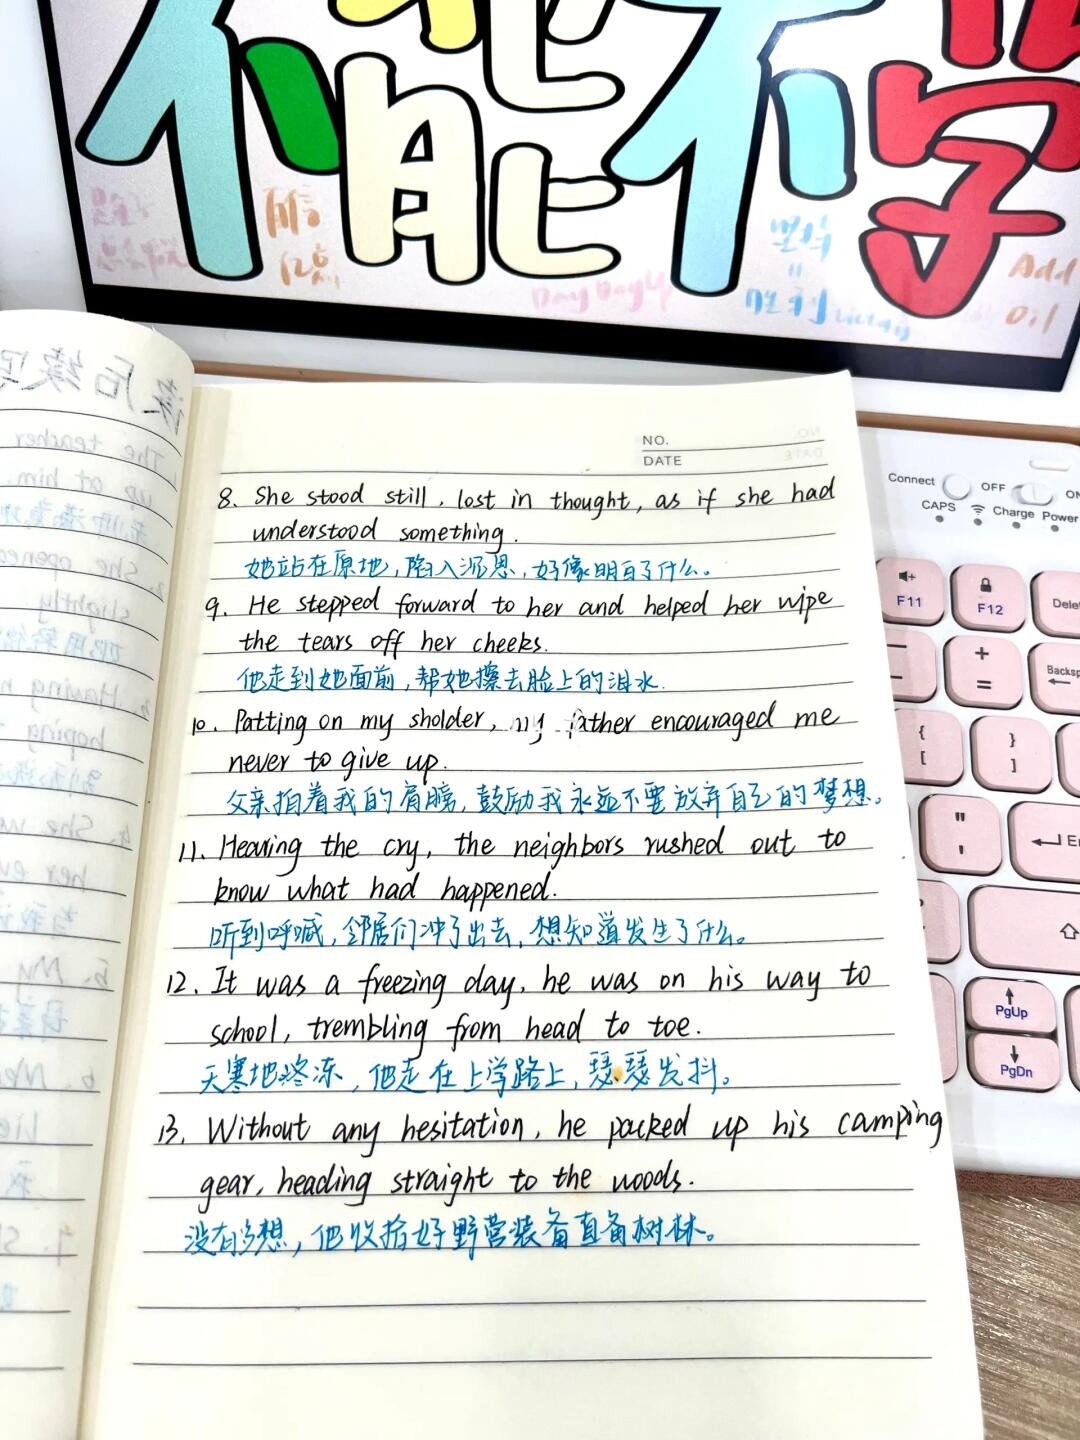 不能不学
自信
Day Day Up
Add
Oil
读后续写
1. The teacher
up at him.
2. She opened
slightly
3. Having
hoping
4. She
her
5. My
6.
7. S
NO.
DATE
8. She stood still, lost in thought, as if she had
understood something.
她站在原地，陷入沉思，好像明白了什么。
9. He stepped forward to her and helped her wipe
the tears off her cheeks.
他走到她面前，帮她擦去脸上的泪水.
10. Patting on my sholder, my father encouraged me
never to give up.
父亲拍着我的肩膀，鼓励我永远不要放弃自己的梦想。
11. Hearing the cry, the neighbors rushed out to
know what had happened.
听到呼喊，邻居们冲了出去，想知道发生了什么。
12. It was a freezing day, he was on his way to
school, trembling from head to toe.
天寒地冻，他走在上学路上，瑟瑟发抖。
13. Without any hesitation, he packed up his camping
gear, heading straight to the woods.
没有多想，他收拾好野营装备直备树林。
Connect OFF ON
CAPS Charge Power
F11 F12 Delet
+ = Backsp
{ [ } ]
" ' En
PgUp
PgDn